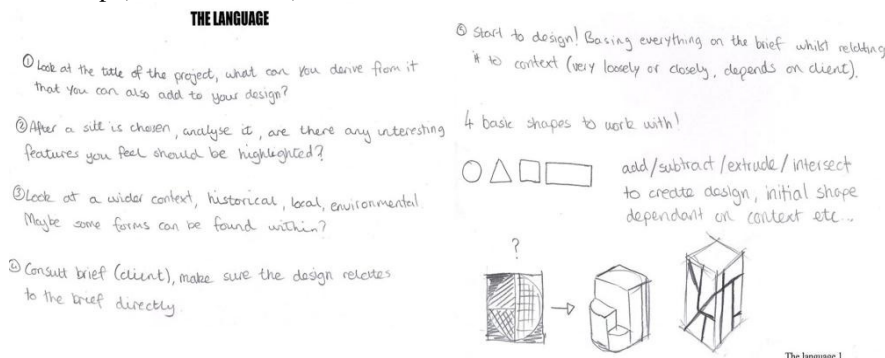 THE LANGUAGE
① Look at the title of the project, what can you derive from it
that you can also add to your design?
② After a site is chosen, analyse it, are there any interesting
features you feel should be highlighted?
③ Look at a wider context, historical, local, environmental
Maybe some forms can be found within?
④ Consult brief (client), make sure the design relates
to the brief directly
⑤ Start to design! Basing everything on the brief whilst relating
it to context (very loosely or closely, depends on client).
4 basic shapes to work with!
add/subtract/extrude/intersect
to create design, initial shape
dependant on context etc...
?
The language 1